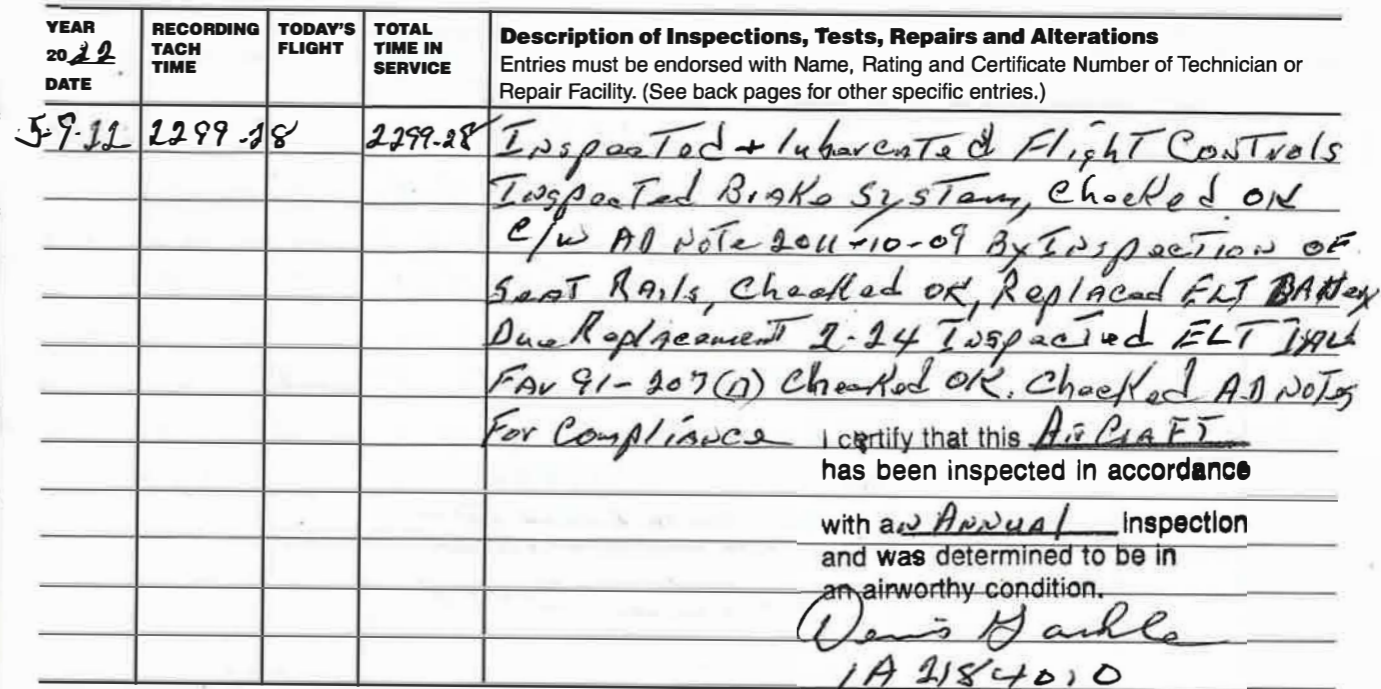 YEAR
2022
DATE
RECORDING
TACH
TIME
TODAY'S
FLIGHT
TOTAL
TIME IN
SERVICE
Description of Inspections, Tests, Repairs and Alterations
Entries must be endorsed with Name, Rating and Certificate Number of Technician or
Repair Facility. (See back pages for other specific entries.)
5-9-22 2299.28 2299.28 Inspected + Flight Controls
Inspected Brake System, Checked OK
C/W AD Note 2011-10-09 By Inspection OF
Seat Rails, Checked OK, Replaced ELT Battery
Due Replacement 2-24 Inspected ELT
FAr 91-207(D) Checked OK. Checked AD Notes
For Compliance I certify that this AirCraFT
has been inspected in accordance
with an Annual inspection
and was determined to be in
an airworthy condition.
IA 2184010